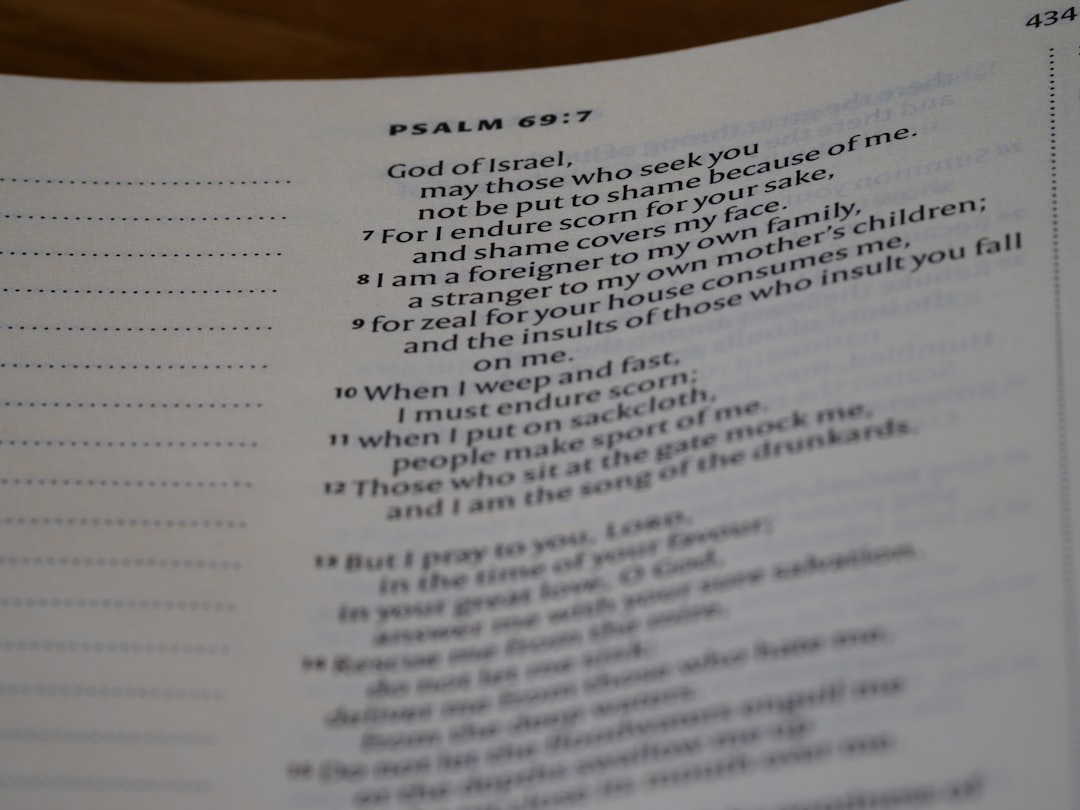 434
PSALM 69:7
God of Israel,
may those who seek you
not be put to shame because of me.
7 For I endure scorn for your sake,
and shame covers my face.
8 I am a foreigner to my own family,
a stranger to my own mother's children;
9 for zeal for your house consumes me,
and the insults of those who insult you fall
on me.
10 When I weep and fast,
I must endure scorn;
11 when I put on sackcloth,
people make sport of me.
12 Those who sit at the gate mock me,
and I am the song of the drunkards.
13 But I pray to you, LORD,
in the time of your favour;
in your great love, O God,
answer me with your sure salvation.
14 Rescue me from the mire,
do not let me sink;
deliver me from those who hate me,
from the deep waters.
15 Do not let the floodwaters engulf me
or the depths swallow me up